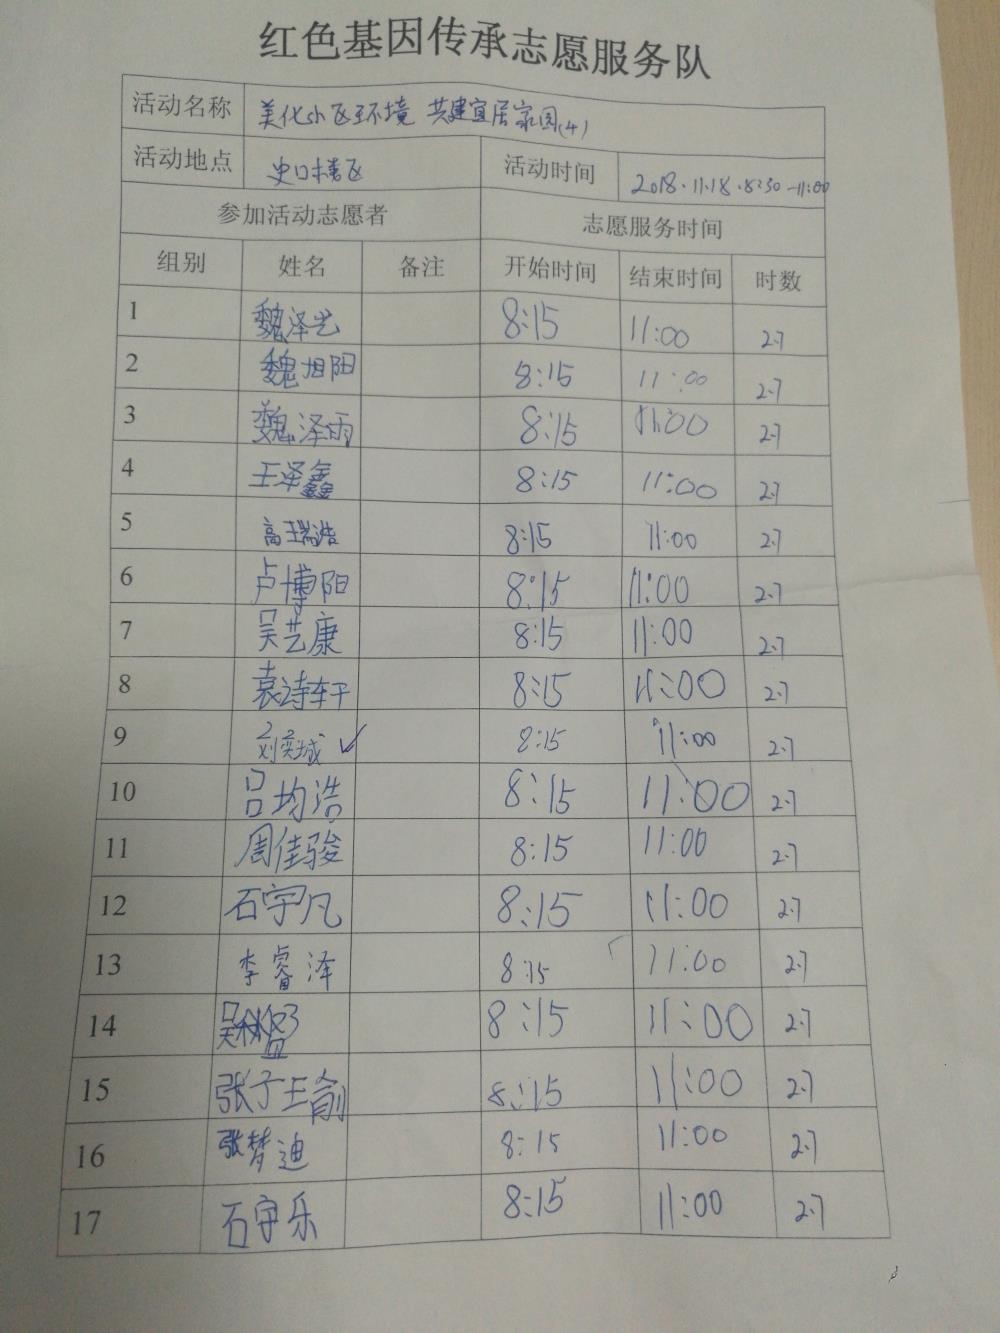 红色基因传承志愿服务队
活动名称 美化小区环境 共建宜居家园(4)
活动地点 史口社区 活动时间 2018.11.18.8:30-11:00
参加活动志愿者 志愿服务时间
组别 姓名 备注 开始时间 结束时间 时数
1 魏泽艺 8:15 11:00 2.7
2 魏旭阳 8:15 11:00 2.7
3 魏泽雨 8:15 11:00 2.7
4 王泽鑫 8:15 11:00 2.7
5 高瑞浩 8:15 11:00 2.7
6 卢博阳 8:15 11:00 2.7
7 吴艺康 8:15 11:00 2.7
8 袁诗轩 8:15 11:00 2.7
9 刘奕城 ✓ 8:15 11:00 2.7
10 吕均浩 8:15 11:00 2.7
11 周佳骏 8:15 11:00 2.7
12 石宇凡 8:15 11:00 2.7
13 李睿泽 8:15 11:00 2.7
14 吴 8:15 11:00 2.7
15 张子瑜 8:15 11:00 2.7
16 张梦迪 8:15 11:00 2.7
17 石守乐 8:15 11:00 2.7